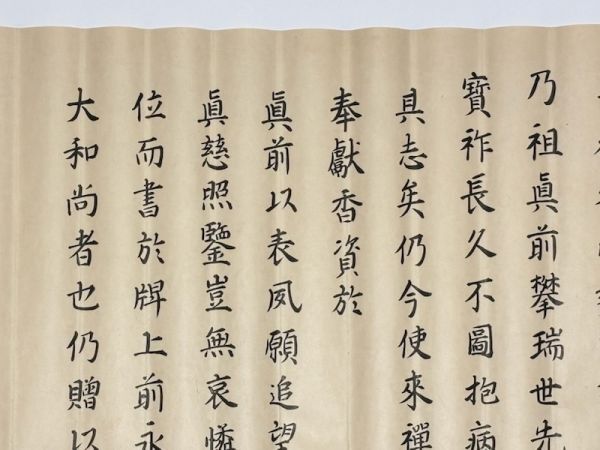 乃祖眞前攀瑞世先
寶祚長久不圖抱病
具志矣仍今使來禪
奉獻香資於
眞前以表夙願追望
眞慈照鑒豈無哀憐
位而書於牌上前永
大和尚者也仍贈以